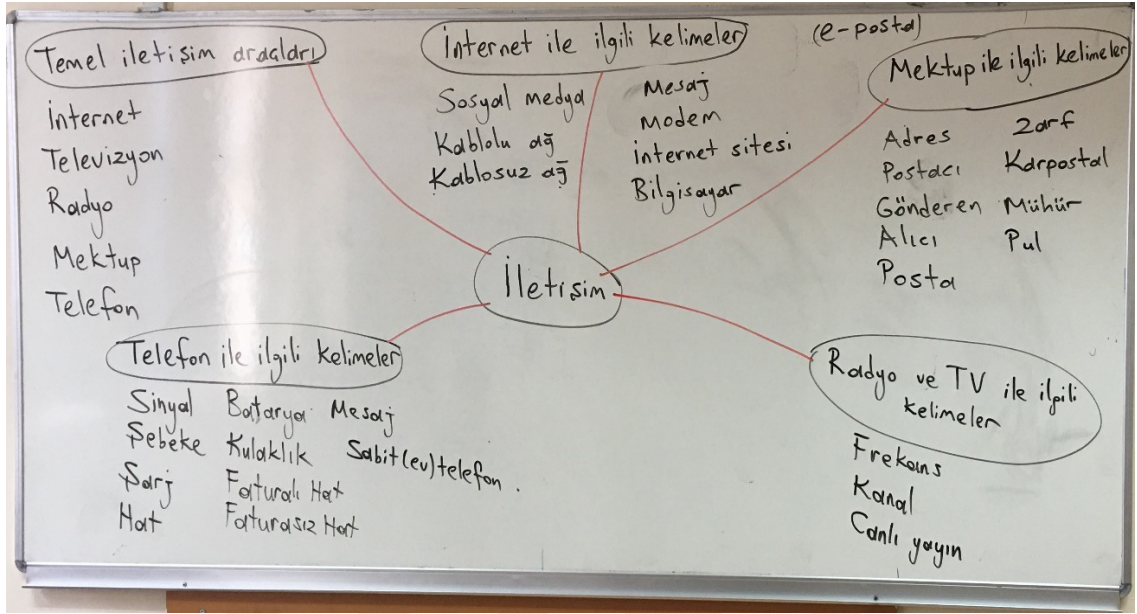 Temel iletişim araçları
İnternet
Televizyon
Radyo
Mektup
Telefon
İnternet ile ilgili kelimeler
Sosyal medya
Kablolu ağ
Kablosuz ağ
Mesaj
Modem
internet sitesi
Bilgisayar
(e-posta)
Mektup ile ilgili kelimeler
Adres
Postacı
Gönderen
Alıcı
Posta
Zarf
Karpostal
Mühür
Pul
İletişim
Telefon ile ilgili kelimeler
Sinyal
Şebeke
Şarj
Hat
Batarya
Kulaklık
Faturalı Hat
Faturasız Hat
Mesaj
Sabit(ev)telefon.
Radyo ve TV ile ilgili
kelimeler
Frekans
Kanal
Canlı yayın